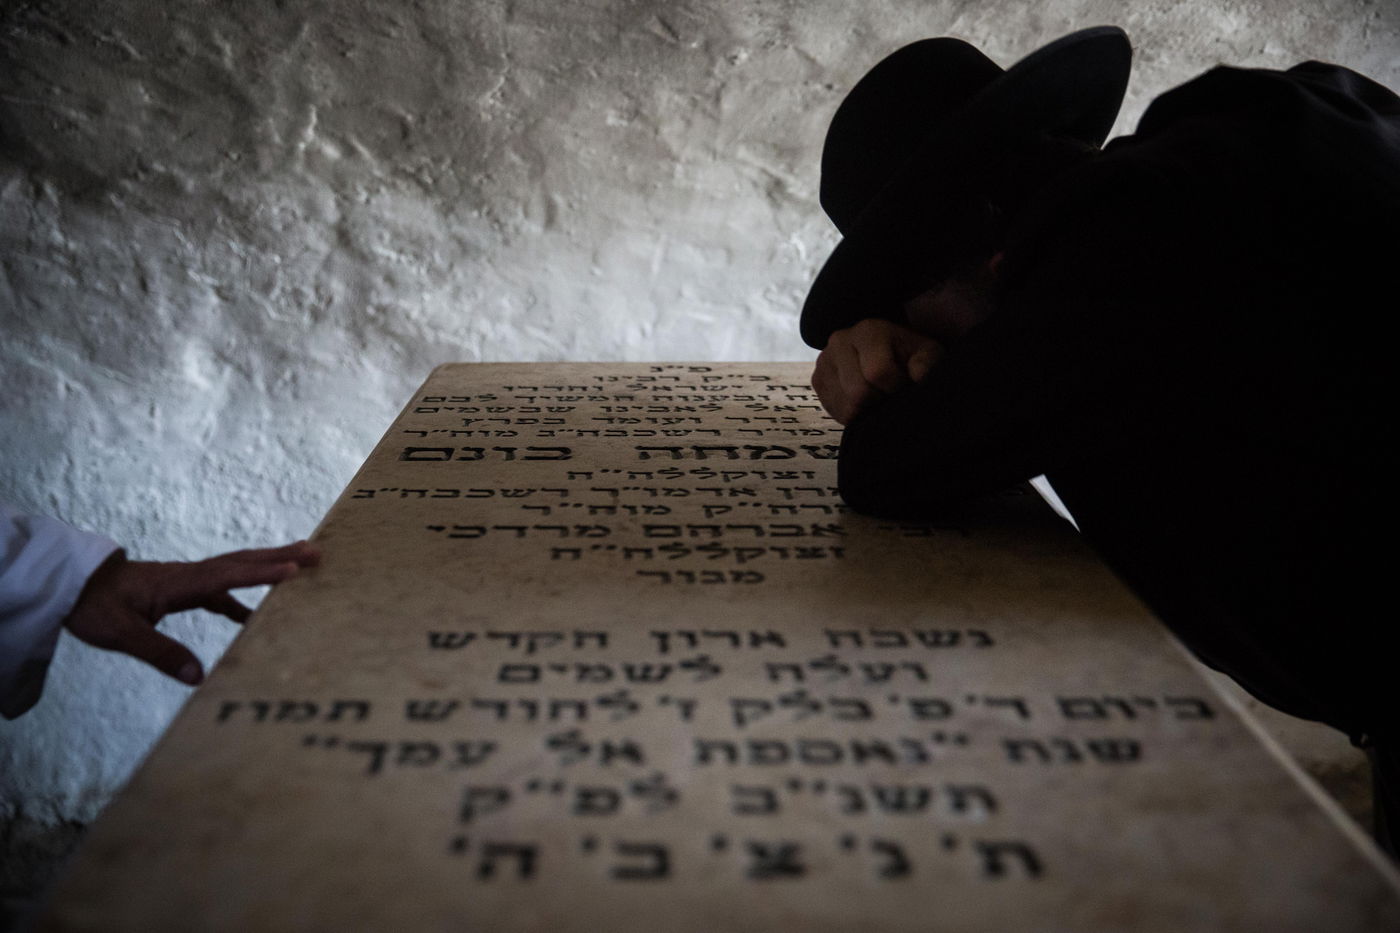 פ״נ
כ״ק רבינו
ישראל וחדרו
ובענוה המשיך לבם
לאבינו שבשמים
גדר ועומד בפרץ
רשכבה״ג מוח״ר
שמחה בונם
זצוקללה״ה
מרן אדמו״ר רשכבה״ג
מוח״ר
רבי אברהם מרדכי
זצוקללה״ה
מגור
נשבה ארון הקדש
ועלה לשמים
ביום ד׳ פ׳ בלק ז׳ לחודש תמוז
שנת ״נאספת אל עמך״
תשנ״ב לפ״ק
ת׳ נ׳ צ׳ ב׳ ה׳